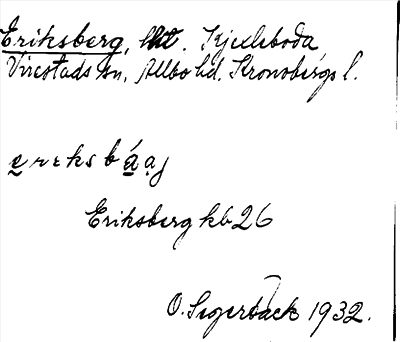 Eriksberg, lht. Kjexleboda,
Virestads sn, Allbo hd. Kronobergs l.
ereksbáaj
Eriksberg kb 26
O. Segerbäck 1932.